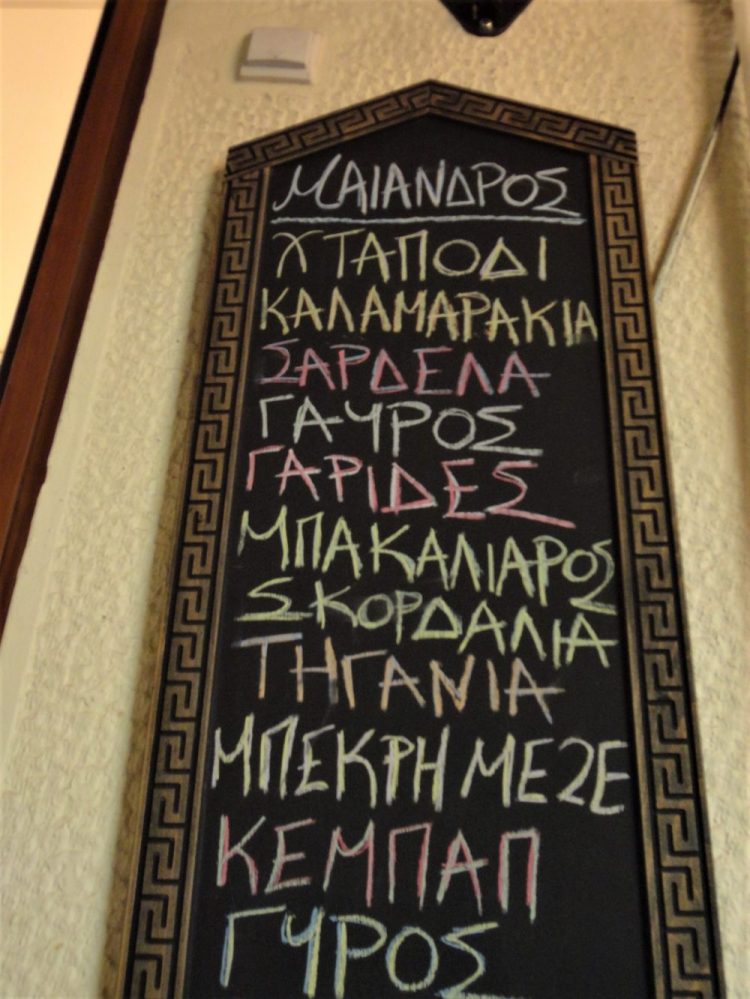 ΜΑΙΑΝΔΡΟΣ
ΧΤΑΠΟΔΙ
ΚΑΛΑΜΑΡΑΚΙΑ
ΣΑΡΔΕΛΑ
ΓΑΥΡΟΣ
ΓΑΡΙΔΕΣ
ΜΠΑΚΑΛΙΑΡΟΣ
ΣΚΟΡΔΑΛΙΑ
ΤΗΓΑΝΙΑ
ΜΠΕΚΡΗ ΜΕΖΕ
ΚΕΜΠΑΠ
ΓΥΡΟΣ